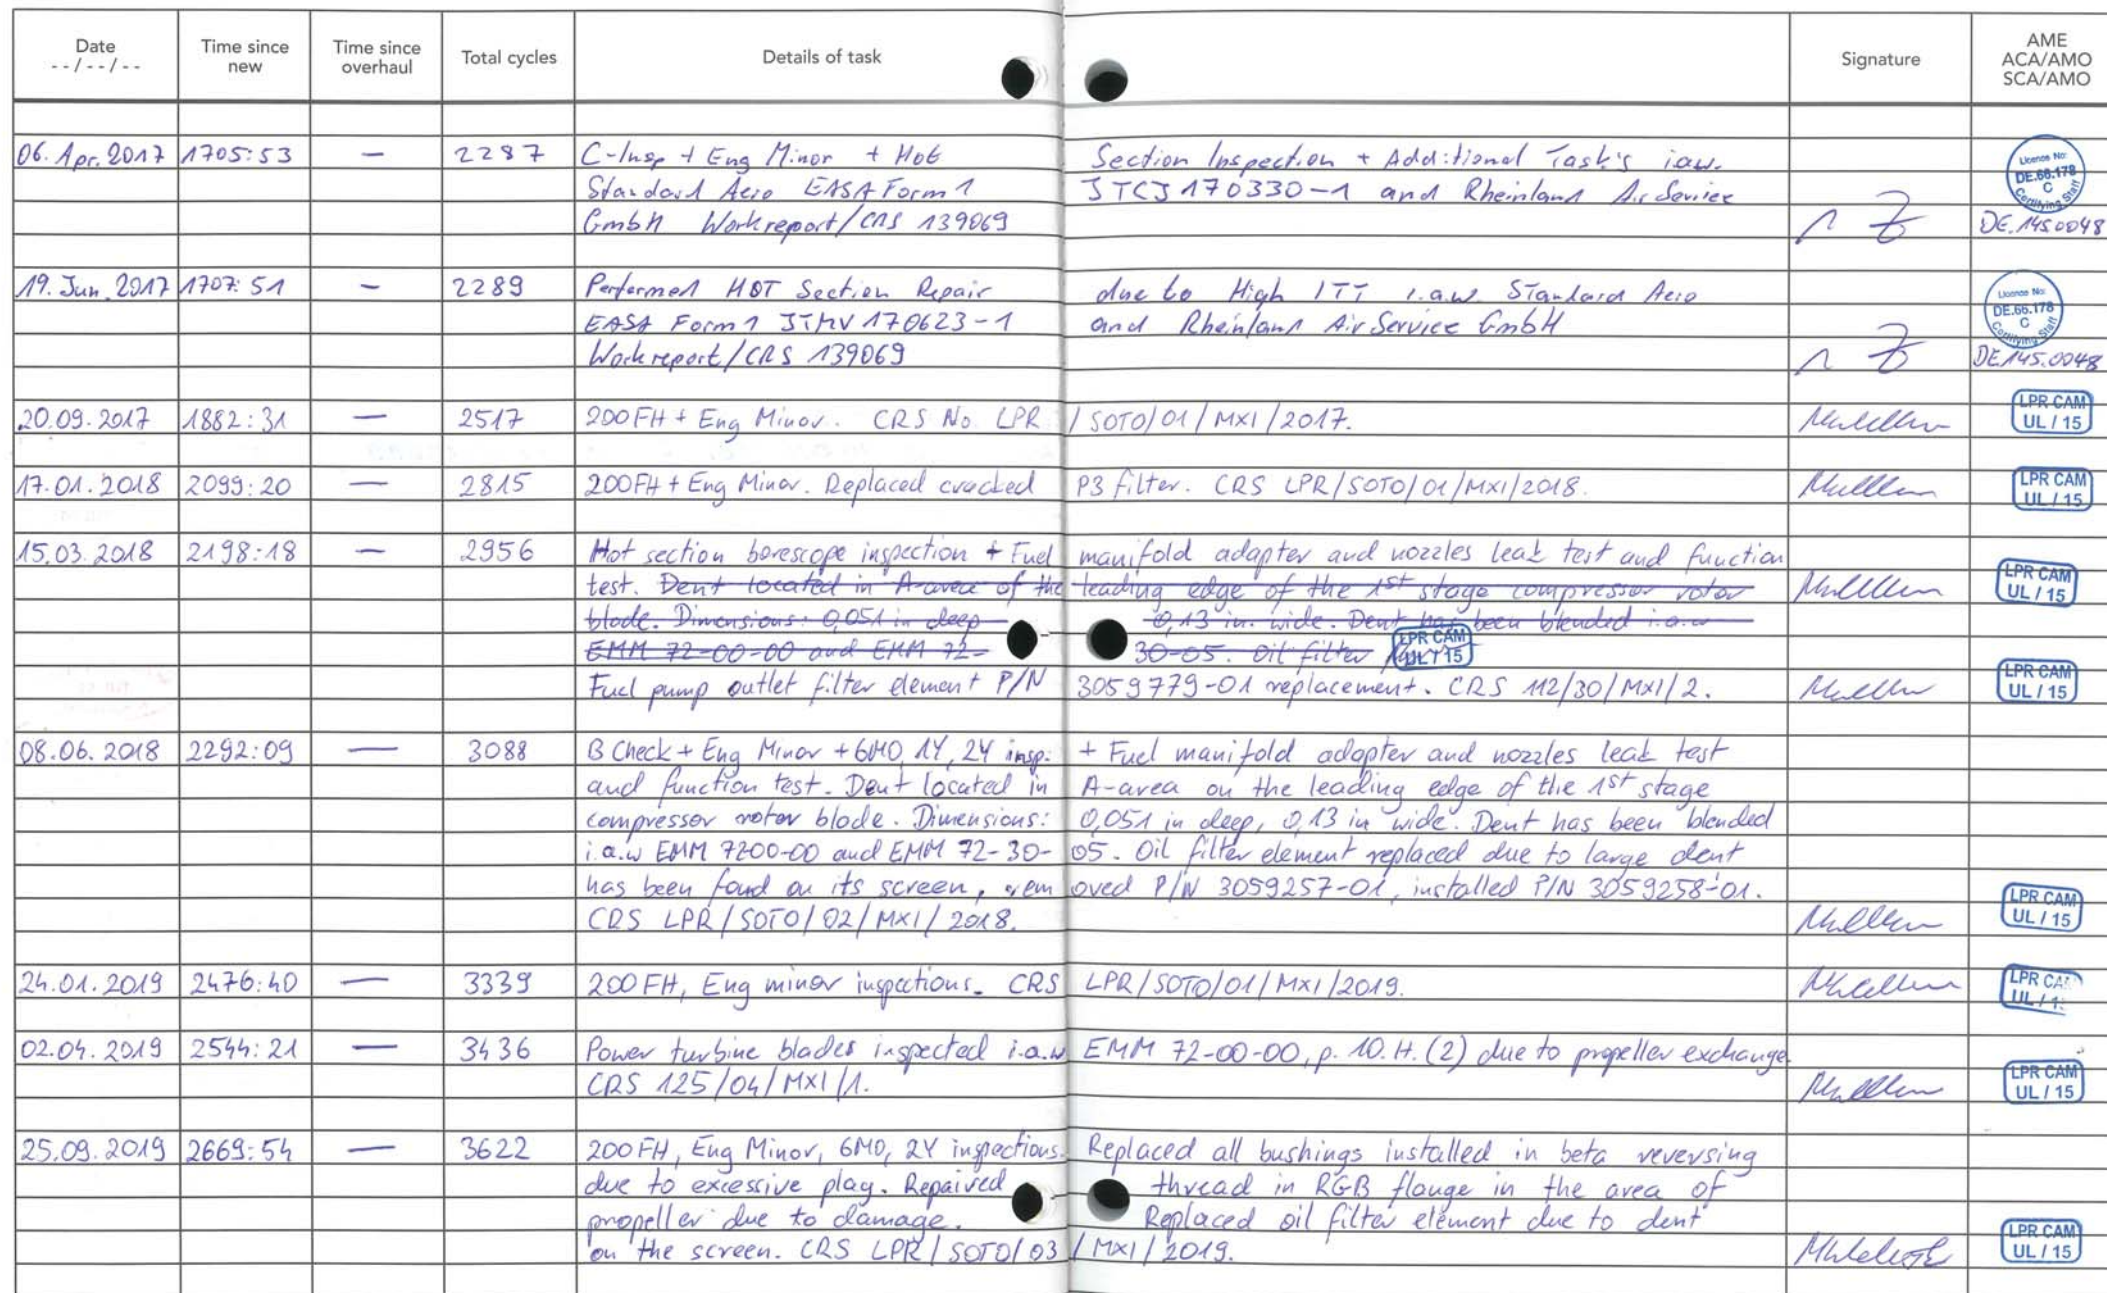 Date Time since Time since Total cycles Details of task Signature AME
--/--/-- new overhaul ACA/AMO
SCA/AMO
06. Apr. 2017 1705:53 — 2287 C-Insp + Eng Minor + Hot Section Inspection + Additional Task's i.a.w.
Standard Aero EASA Form 1 JTCJ170330-1 and Rheinland Air Service
GmbH Workreport/CRS 139069
Licence No:
DE.66.178
C
Certifying Staff
DE.145.0048
19. Jun. 2017 1707:51 — 2289 Performed HOT Section Repair due to High ITT i.a.w. Standard Aero
EASA Form 1 JTMV170623-1 and Rheinland Air Service GmbH
Workreport/CRS 139069
Licence No:
DE.66.178
C
Certifying Staff
DE.145.0048
20.09.2017 1882:31 — 2517 200FH + Eng Minor. CRS No. LPR/SOTO/01/MXI/2017.
LPR CAM
UL / 15
17.01.2018 2099:20 — 2815 200FH + Eng Minor. Replaced cracked P3 filter. CRS LPR/SOTO/01/MXI/2018.
LPR CAM
UL / 15
15.03.2018 2198:18 — 2956 Hot section borescope inspection + Fuel manifold adapter and nozzles leak test and function
test. Dent located in A-area of the leading edge of the 1st stage compressor rotor
LPR CAM
UL / 15
blade. Dimensions: 0,051 in deep 0,13 in. wide. Dent has been blended i.a.w
EMM 72-00-00 and EMM 72-30-05. Oil filter
LPR CAM
UL / 15
Fuel pump outlet filter element P/N 3059779-01 replacement. CRS 112/30/MXI/2.
LPR CAM
UL / 15
08.06.2018 2292:09 — 3088 B Check + Eng Minor + 6MO, 1Y, 2Y insp. + Fuel manifold adapter and nozzles leak test
and function test. Dent located in A-area on the leading edge of the 1st stage
compressor rotor blade. Dimensions: 0,051 in deep, 0,13 in wide. Dent has been blended
i.a.w EMM 7200-00 and EMM 72-30-05. Oil filter element replaced due to large dent
has been found on its screen, removed P/N 3059257-01, installed P/N 3059258-01.
CRS LPR/SOTO/02/MXI/2018.
LPR CAM
UL / 15
24.01.2019 2476:40 — 3339 200FH, Eng minor inspections. CRS LPR/SOTO/01/MXI/2019.
LPR CAM
UL / 15
02.04.2019 2544:21 — 3436 Power turbine blades inspected i.a.w EMM 72-00-00, p. 10.H.(2) due to propeller exchange
CRS 125/04/MXI/1.
LPR CAM
UL / 15
25.09.2019 2669:54 — 3622 200FH, Eng Minor, 6MO, 2Y inspections. Replaced all bushings installed in beta reversing
due to excessive play. Repaired thread in RGB flange in the area of
propeller due to damage. Replaced oil filter element due to dent
on the screen. CRS LPR/SOTO/03/MXI/2019.
LPR CAM
UL / 15